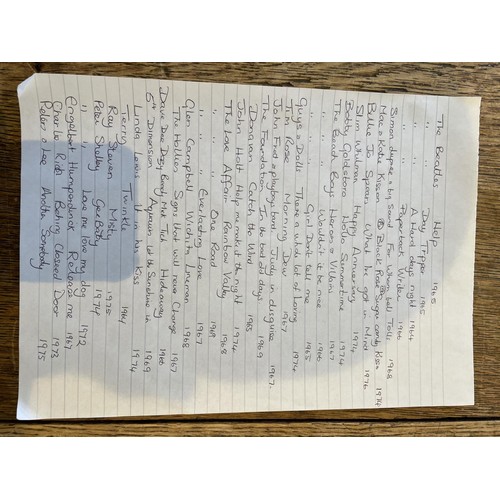 The Beatles Help 1965
" " Day Tripper 1965
" " A Hard days night 1964
" " Paperback Writer 1966
Simon dupree + big Sound For Whom bell Tolls 1968
Mac + Katie Kissoon Black Rose Sugar candy Kisses 1974
Billie Jo Spears What he got in Mind 1976
Slim Whitman Happy Anniversary 1974
Bobby Goldsboro Hello Summertime 1974
The Beach Boys Heroes + Villains 1967
" " " Wouldn't it be nice 1966
" " " Girl Don't tell me 1965
Guys + Dolls There's a whole lot of loving 1974
Tim Rose Morning Dew 1967
John Fred + playboy band Judy in disguise 1967.
The Foundation In the bad old days 1969
Donavan Catch the Wind 1965
John Holt Help me make it the night 1974
The Love Affair Rainbow Valley 1968
" " " One Road 1969
" " " Everlasting Love 1967
Glen Campbell Wichita Lineman 1968
The Hollies Signs that will never Change 1967
Dave Dee Dozy Beaky Mick Tich Hideaway 1966
5th Dimension Aquarius Let the Sunshine in 1969
Linda Lewis It's in his Kiss 1974
Terry Twinkle 1964
Ray Steven Misty 1975
Peter Shelley Gee Baby 1974
" " Love me love my dog 1972
Engelbert Humperdinck Release me 1967
Charlie Rich Behing Closed Door 1973
Peters + Lee And by Somebody 1975